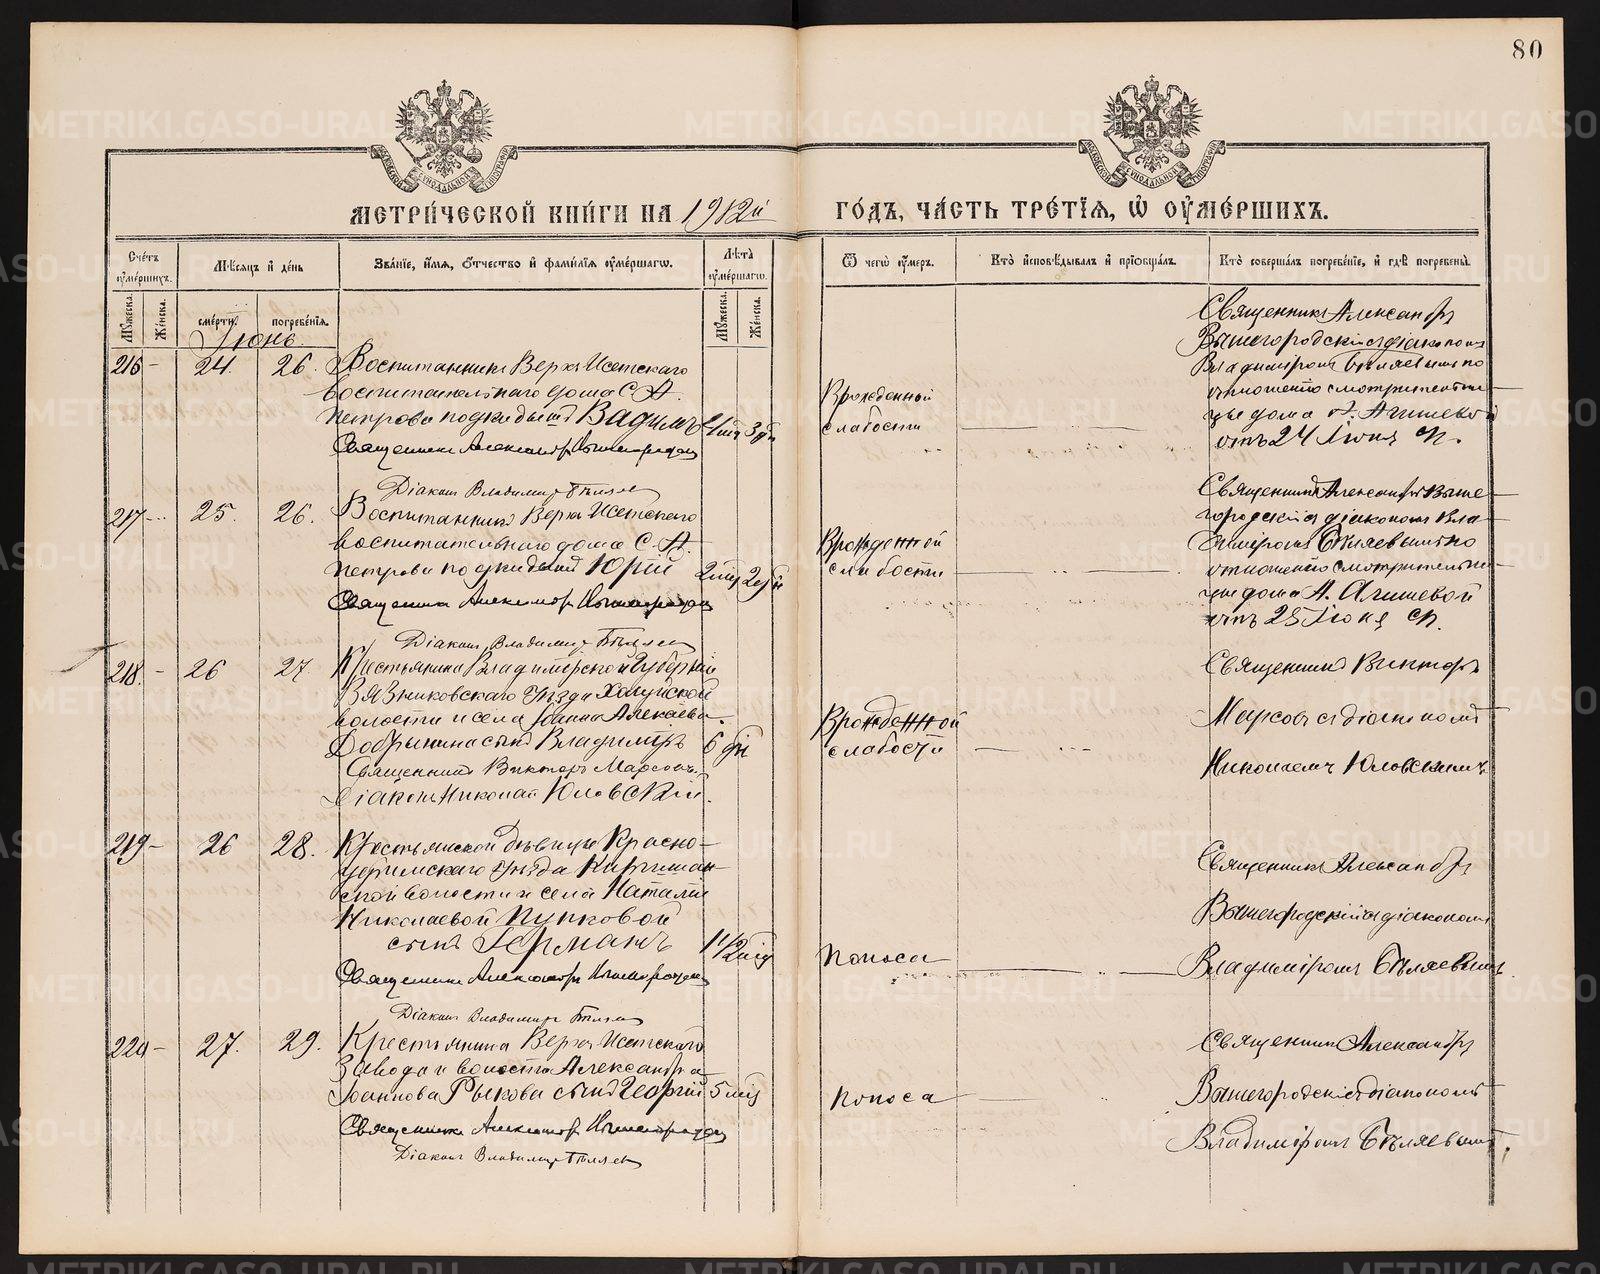 80
МЕТРИ́ЧЕСКОЙ КНИ́ГИ НА 1912й ГО́ДЪ, ЧА́СТЬ ТРЕ́ТІѦ, Ѡ ОУМЕ́РШИХЪ.
Сче́тъ оуме́ршихъ.
Мѣсяцъ и день
Зва́ніе, и́мѧ, о́тчество и фами́лїѧ оуме́ршагѡ.
Лѣта оуме́ршагѡ.
Ѿ чегѡ̀ оу́меръ.
Кто̀ исповѣ́дывалъ и прїобща́лъ.
Кто̀ соверша́лъ погребе́нїе, и гдѣ̀ погребены̀.
Мꙋжеска.
Женска.
сме́рти.
погребе́нїѧ.
Мꙋжеска.
Женска.
Іюнь.
216 - 24. 26.
Воспитанникъ Верхъ Исетскаго
воспитательнаго дома С. А.
Петрова подкидышъ Вадимъ
Священникъ Александръ Вышегородскій
Діаконъ Владиміръ Бѣляевъ
Врожденной
слабости
Священникъ Александръ
Вышегородскій съ діакономъ
Владиміромъ Бѣляевымъ по
отношенію смотрительни-
цы дома А. Агишевой
отъ 24 Іюня
217 - 25. 26.
Воспитанникъ Верхъ Исетскаго
воспитательнаго дома С. А.
Петрова подкидышъ Юрій
Священникъ Александръ Вышегородскій
Діаконъ Владиміръ Бѣляевъ
Врожденной
слабости
Священникъ Александръ Выше-
городскій съ діакономъ Вла-
диміромъ Бѣляевымъ по
отношенію смотрительни-
цы дома А. Агишевой
отъ 25 Іюня
218. - 26 27.
Крестьянина Владимірской губерніи
Вязниковскаго уѣзда Холуйской
волости и села Іоанна Алексѣева
Добрынина сынъ Владиміръ
6 дн
Священникъ Викторъ Марсовъ.
Діаконъ Николай Юловскій.
Врожденной
слабости
Священникъ Викторъ
Марсовъ съ діакономъ
Николаемъ Юловскимъ
219 - 26 28.
Крестьянской дѣвицы Красно-
уфимскаго уѣзда
ской волости и села Наталіи
Николаевой Пупковой
сынъ Германъ
1 1/2 мѣс
Священникъ Александръ Вышегородскій
Діаконъ Владиміръ Бѣляевъ
Поноса
Священникъ Александръ
Вышегородскій съ діакономъ
Владиміромъ Бѣляевымъ
220 - 27. 29.
Крестьянина Верхъ Исетскаго
завода и волости Александра
Іоаннова Рыкова сынъ Георгій
5 мѣс
Священникъ Александръ Вышегородскій
Діаконъ Владиміръ Бѣляевъ
Поноса
Священникъ Александръ
Вышегородскій съ діакономъ
Владиміромъ Бѣляевымъ.
METRIKI.GASO-URAL.RU